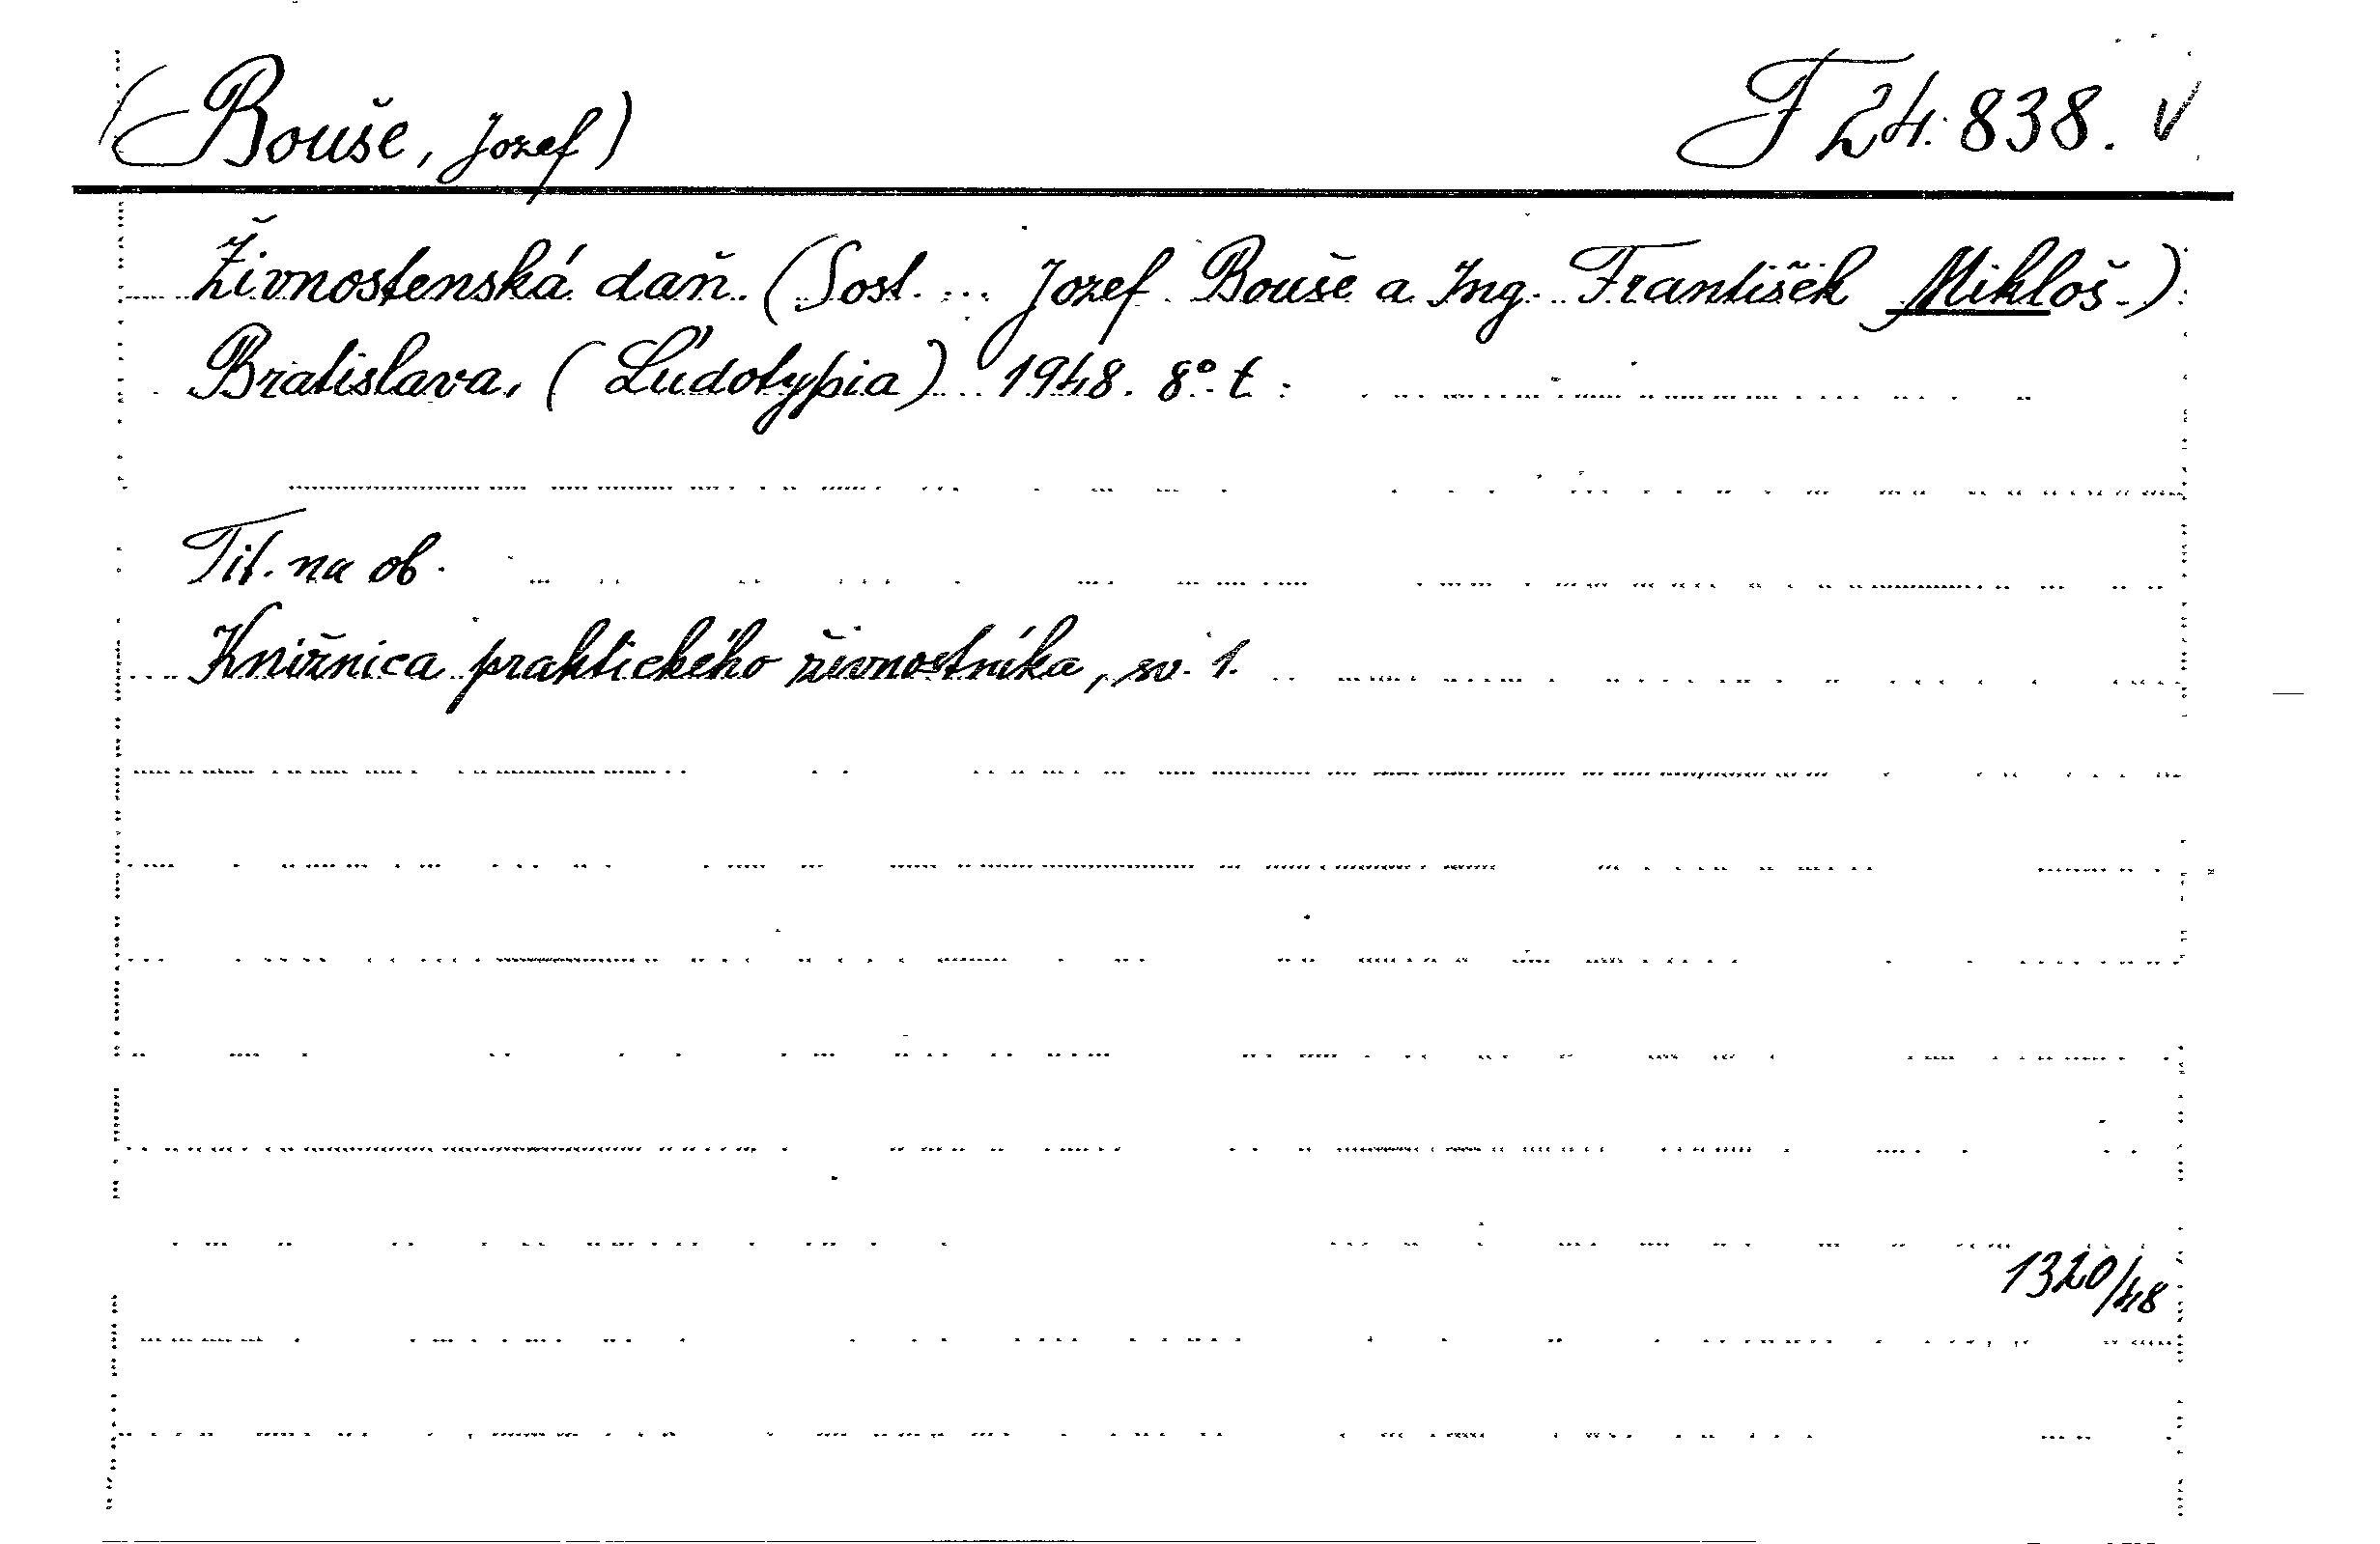 (Bouše, Jozef) F 24.838. V
Živnostenská daň. (Sost. ... Jozef Bouše a Ing. František Mikloš.)
Bratislava, (Ľudotypia) 1948. 8° t.
Tit. na ob.
Knižnica praktického živnostníka, sv. 1.
1320/48